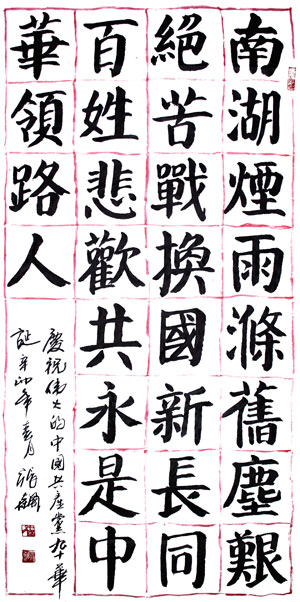 南湖煙雨滌舊塵艱
絕苦戰換國新長同
百姓悲歡共永是中
華領路人
慶祝偉大的中國共産黨九十華
誕辛卯年春月